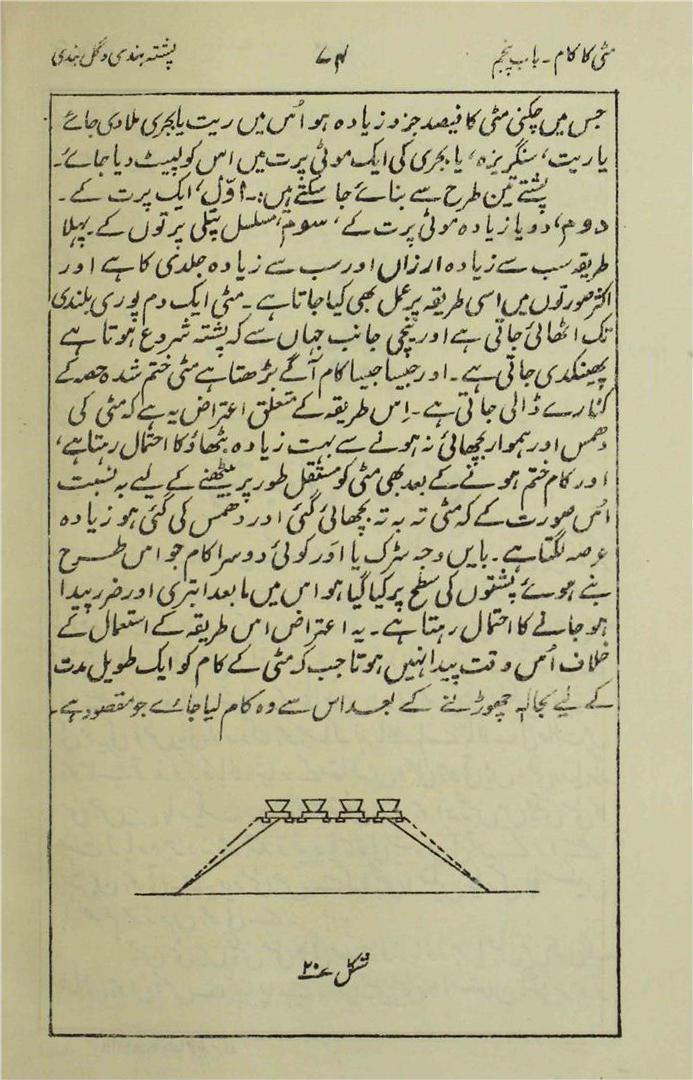 مٹی کا کام۔ باب پنجم ۷۴ پشتہ بندی و گل بندی
جس میں چکنی مٹی کا فیصد جزو زیادہ ہو اُس میں ریت یا بجری ملا دی جائے
یا ریت، سنگریزہ، یا بجری کی ایک موٹی پرت میں اس کو لپیٹ دیا جائے۔
پشتے تین طرح سے بنائے جا سکتے ہیں:۔ اوّل، ایک پرت کے۔
دوم، دو یا زیادہ موٹی پرت کے، سوم، مسلسل پتلی پرتوں کے۔ پہلا
طریقہ سب سے زیادہ ارزاں اور سب سے زیادہ جلدی کا ہے اور
اکثر صورتوں میں اسی طریقہ پر عمل بھی کیا جاتا ہے۔ مٹی ایک دم پوری بلندی
تک اٹھائی جاتی ہے اور نیچی جانب جہاں سے کہ پشتہ شروع ہوتا ہے
پھینکدی جاتی ہے۔ اور جیسا جیسا کام آگے بڑھتا ہے مٹی ختم شدہ حصہ کے
کنارے ڈالی جاتی ہے۔ اِس طریقہ کے متعلق اعتراض یہ ہے کہ مٹی کی
دھمس اور ہموار بچھائی نہ ہونے سے بہت زیادہ بٹھاؤ کا احتمال رہتا ہے،
اور کام ختم ہونے کے بعد بھی مٹی کو مستقل طور پر بیٹھنے کے لیے بہ نسبت
اُس صورت کے کہ مٹی تہ بہ تہ بچھائی گئی اور دھمس کی گئی ہو زیادہ
عرصہ لگتا ہے۔ بایں وجہ سڑک یا اَور کوئی دوسرا کام جو اس طرح
بنے ہوئے پشتوں کی سطح پر کیا گیا ہو اس میں مابعد ابتری اور ضرر پیدا
ہو جانے کا احتمال رہتا ہے۔ یہ اعتراض اس طریقہ کے استعمال کے
خلاف اُس وقت پیدا نہیں ہوتا جب کہ مٹی کے کام کو ایک طویل مدت
کے لیے بحالہٖ چھوڑنے کے بعد اس سے وہ کام لیا جائے جو مقصود ہے۔
شکل ۲۰